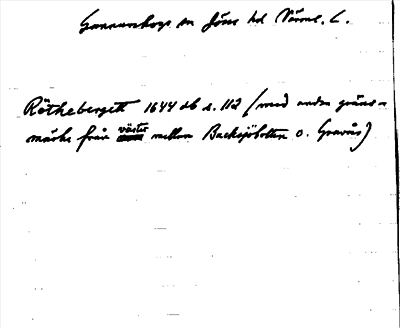 Gunnarskogs sn Jösse hd Värml. L.
Röthebergett 1644 db s. 112 (med andra gräns-
märke från väster mellan Backsjöbotten o. Gravås)